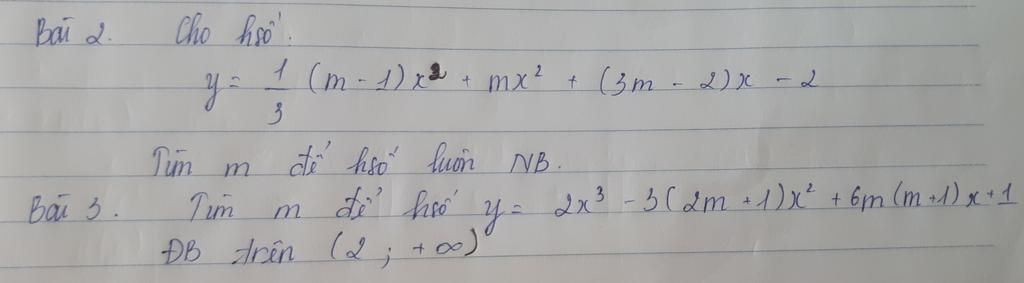 Bài 2. Cho hsố:
y = 1/3 (m - 1)x² + mx² + (3m - 2)x - 2
Tìm m để hsố luôn NB.
Bài 3. Tìm m để hsố y = 2x³ - 3(2m + 1)x² + 6m(m+1)x+1
ĐB trên (2 ; +∞)